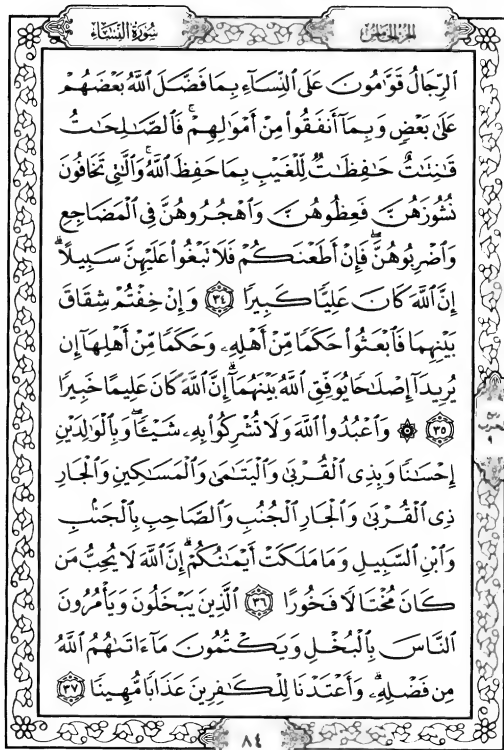 الجزء الخامس
سورة النساء
ٱلرِّجَالُ قَوَّٰمُونَ عَلَى ٱلنِّسَآءِ بِمَا فَضَّلَ ٱللَّهُ بَعْضَهُمْ
عَلَىٰ بَعْضٍ وَبِمَآ أَنفَقُوا۟ مِنْ أَمْوَٰلِهِمْ ۚ فَٱلصَّٰلِحَٰتُ
قَٰنِتَٰتٌ حَٰفِظَٰتٌ لِّلْغَيْبِ بِمَا حَفِظَ ٱللَّهُ ۚ وَٱلَّٰتِى تَخَافُونَ
نُشُوزَهُنَّ فَعِظُوهُنَّ وَٱهْجُرُوهُنَّ فِى ٱلْمَضَاجِعِ
وَٱضْرِبُوهُنَّ ۖ فَإِنْ أَطَعْنَكُمْ فَلَا تَبْغُوا۟ عَلَيْهِنَّ سَبِيلًا ۗ
إِنَّ ٱللَّهَ كَانَ عَلِيًّا كَبِيرًا ٣٤ وَإِنْ خِفْتُمْ شِقَاقَ
بَيْنِهِمَا فَٱبْعَثُوا۟ حَكَمًا مِّنْ أَهْلِهِۦ وَحَكَمًا مِّنْ أَهْلِهَآ إِن
يُرِيدَآ إِصْلَٰحًا يُوَفِّقِ ٱللَّهُ بَيْنَهُمَآ ۗ إِنَّ ٱللَّهَ كَانَ عَلِيمًا خَبِيرًا
٣٥ ۞ وَٱعْبُدُوا۟ ٱللَّهَ وَلَا تُشْرِكُوا۟ بِهِۦ شَيْـًٔا ۖ وَبِٱلْوَٰلِدَيْنِ
إِحْسَٰنًا وَبِذِى ٱلْقُرْبَىٰ وَٱلْيَتَٰمَىٰ وَٱلْمَسَٰكِينِ وَٱلْجَارِ
ذِى ٱلْقُرْبَىٰ وَٱلْجَارِ ٱلْجُنُبِ وَٱلصَّاحِبِ بِٱلْجَنۢبِ
وَٱبْنِ ٱلسَّبِيلِ وَمَا مَلَكَتْ أَيْمَٰنُكُمْ ۗ إِنَّ ٱللَّهَ لَا يُحِبُّ مَن
كَانَ مُخْتَالًا فَخُورًا ٣٦ ٱلَّذِينَ يَبْخَلُونَ وَيَأْمُرُونَ
ٱلنَّاسَ بِٱلْبُخْلِ وَيَكْتُمُونَ مَآ ءَاتَىٰهُمُ ٱللَّهُ
مِن فَضْلِهِۦ ۗ وَأَعْتَدْنَا لِلْكَٰفِرِينَ عَذَابًا مُّهِينًا ٣٧
٨٤